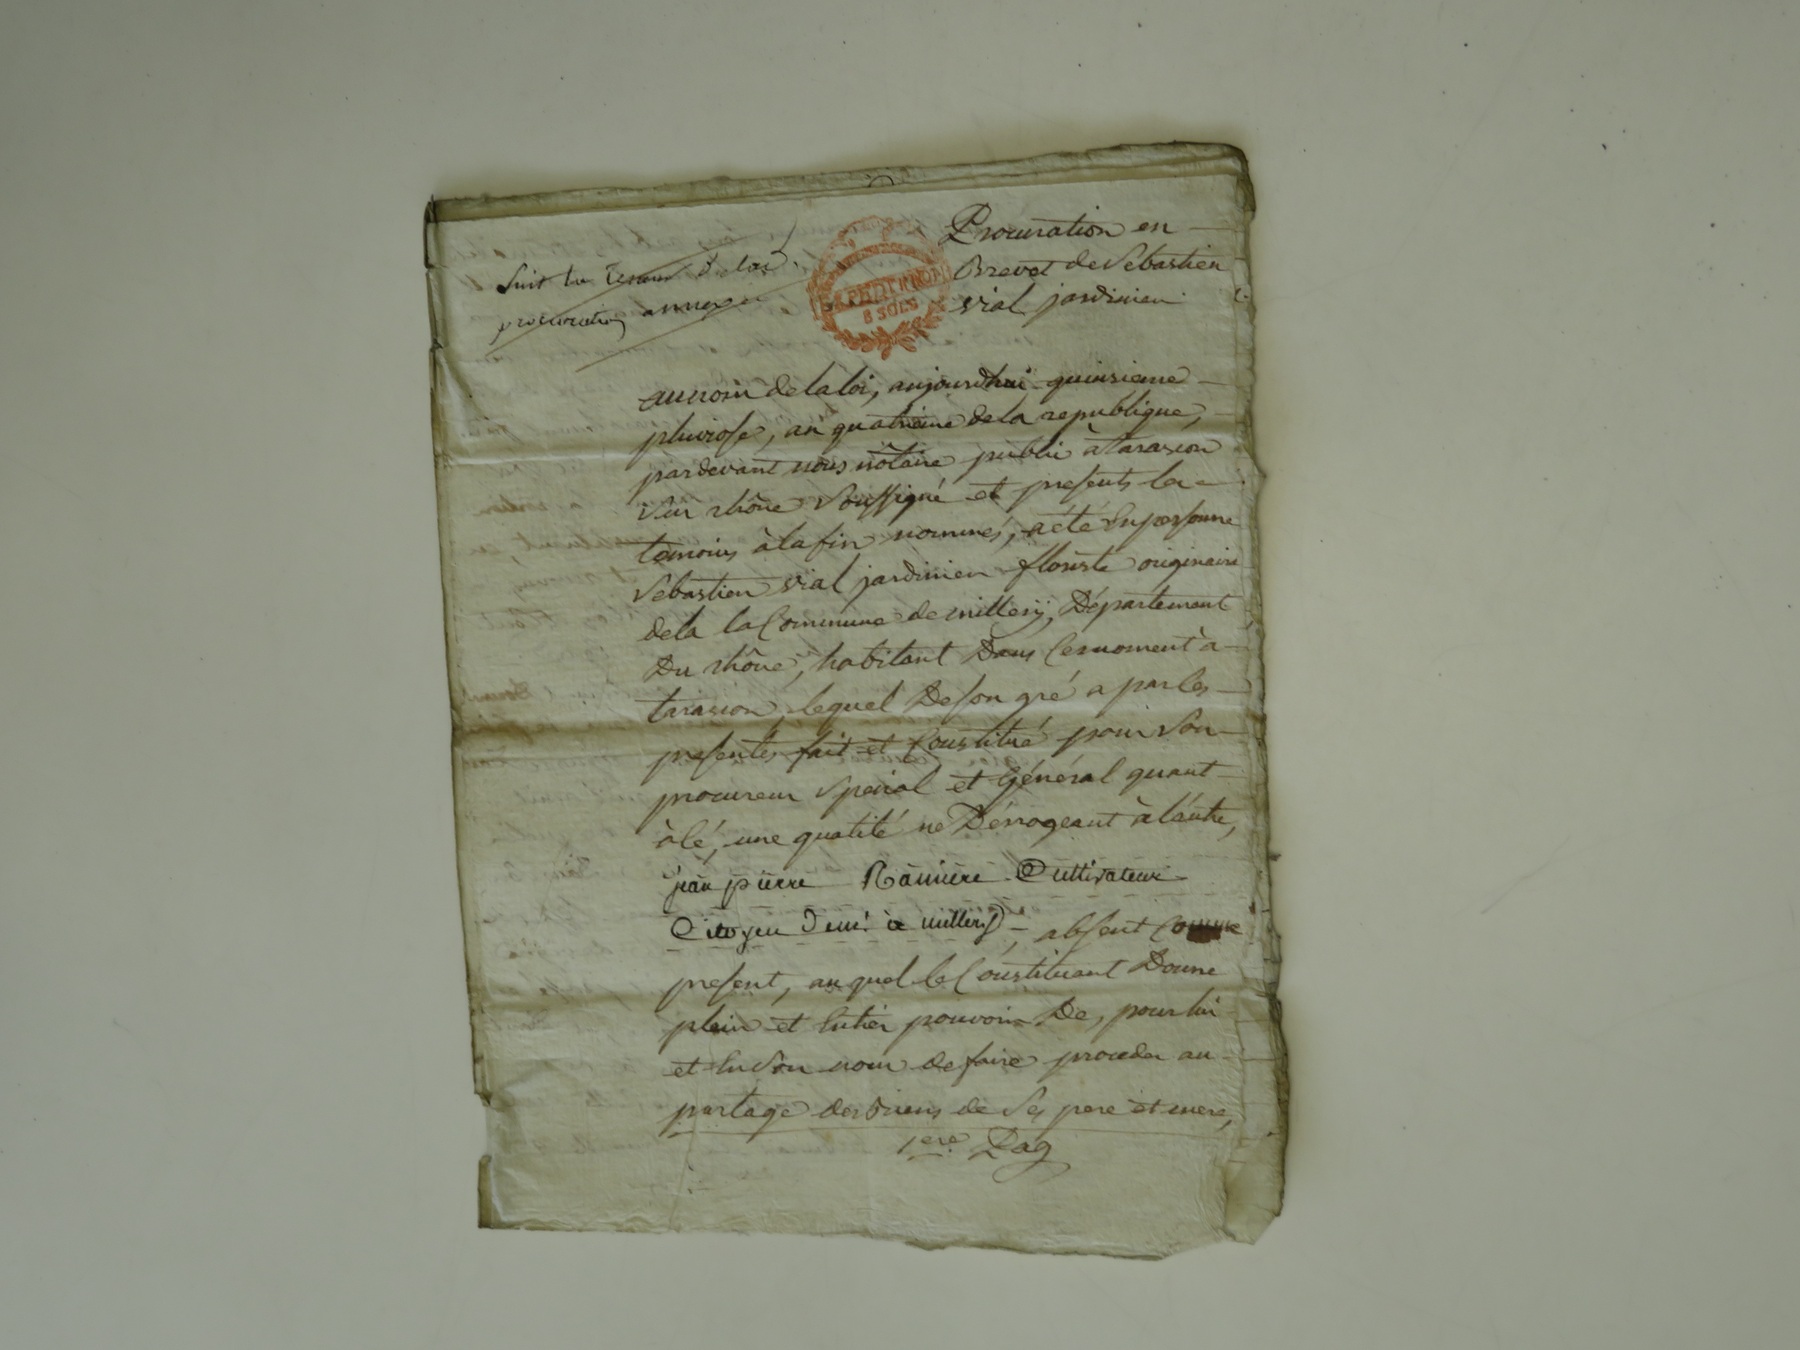 Procuration en
Brevet de Sebastien
vial jardinier
suit la teneur de las
procuration annexée
EXPEDITION
8 SOLS
au nom de la loi, aujourdhui quinsieme
pluviose, an quatrieme de la republique,
pardevant nous nôtaire public à tarascon
sur rhône soussigné et presents les
témoins à la fin nommés, a été en personne
sebastien vial jardinier fleuriste originaire
de la la Commune de millery, Département
Du rhône, habitant Dans ce moment à
tarascon, lequel De son gré a par les
presentes fait et Constitué pour son
procureur special et Général quant
à lé, une qualité ne Dérrogeant à l'autre,
jean pierre Cultivateur
Citoyen à millery, absent comme
present, au quel le Constituant Donne
plein et entier pouvoir De, pour lui
et en son nom de faire proceder au
partage des biens de ses pere et mere,
1ere. Pag